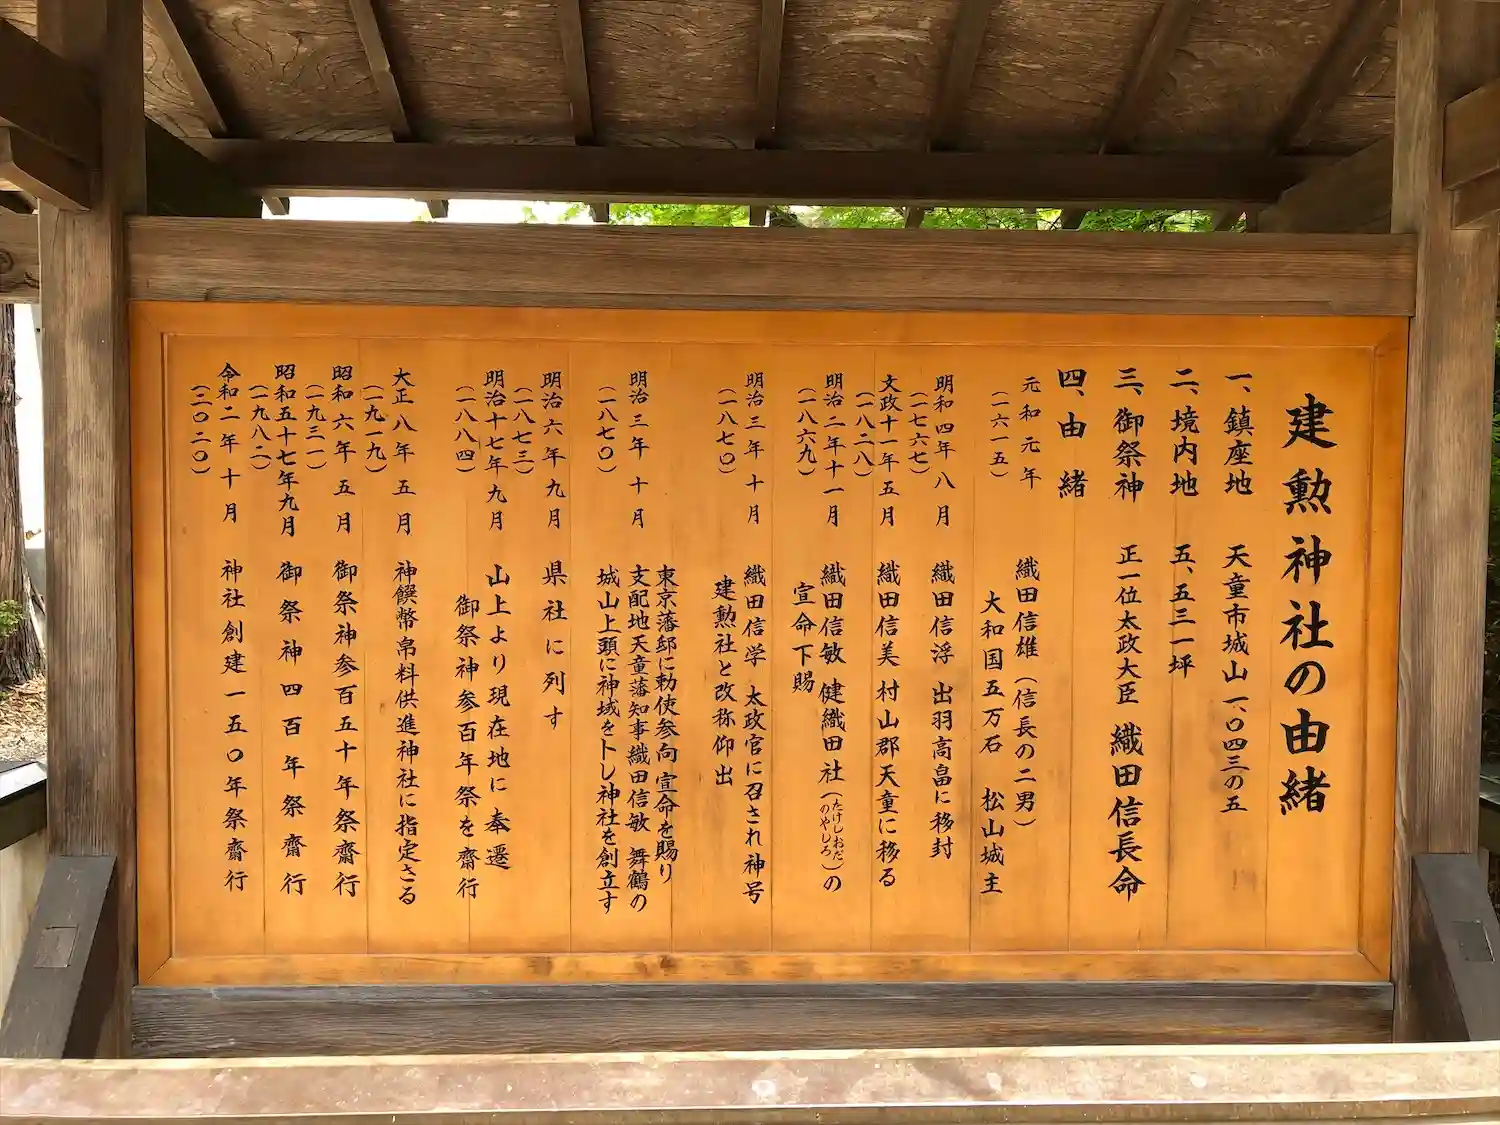 建勲神社の由緒
一、鎮座地 天童市城山一、〇四三の五
二、境内地 五、五三一坪
三、御祭神 正一位太政大臣 織田信長命
四、由緒
元和元年 織田信雄(信長の二男)
(一六一五) 大和国五万石 松山城主
明和四年八月 織田信浮 出羽高畠に移封
(一七六七)
文政十一年五月 織田信美 村山郡天童に移る
(一八二八)
明治二年十一月 織田信敏 健織田社(たけしおだのやしろ)の
(一八六九) 宣命下賜
明治三年十月 織田信学 太政官に召され神号
(一八七〇) 建勲社と改称仰出
東京藩邸に勅使参向 宣命を賜り
明治三年十月 支配地天童藩知事織田信敏 舞鶴の
(一八七〇) 城山上頭に神域をトし神社を創立す
明治六年九月 県社に列す
(一八七三)
明治十七年九月 山上より現在地に奉遷
(一八八四) 御祭神参百年祭を齋行
大正八年五月 神饌幣帛料供進神社に指定さる
(一九一九)
昭和六年五月 御祭神参百五十年祭齋行
(一九三一)
昭和五十七年九月 御祭神四百年祭齋行
(一九八二)
令和二年十月 神社創建一五〇年祭齋行
(二〇二〇)